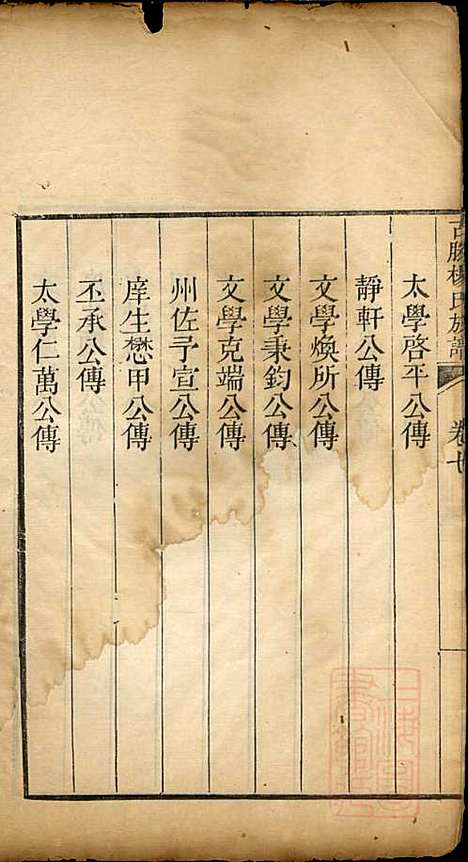 古勝楊氏族譜
卷七
太學啓平公傳
靜軒公傳
文學煥所公傳
文學秉鈞公傳
文學克端公傳
州佐予宣公傳
庠生懋甲公傳
丕承公傳
太學仁萬公傳